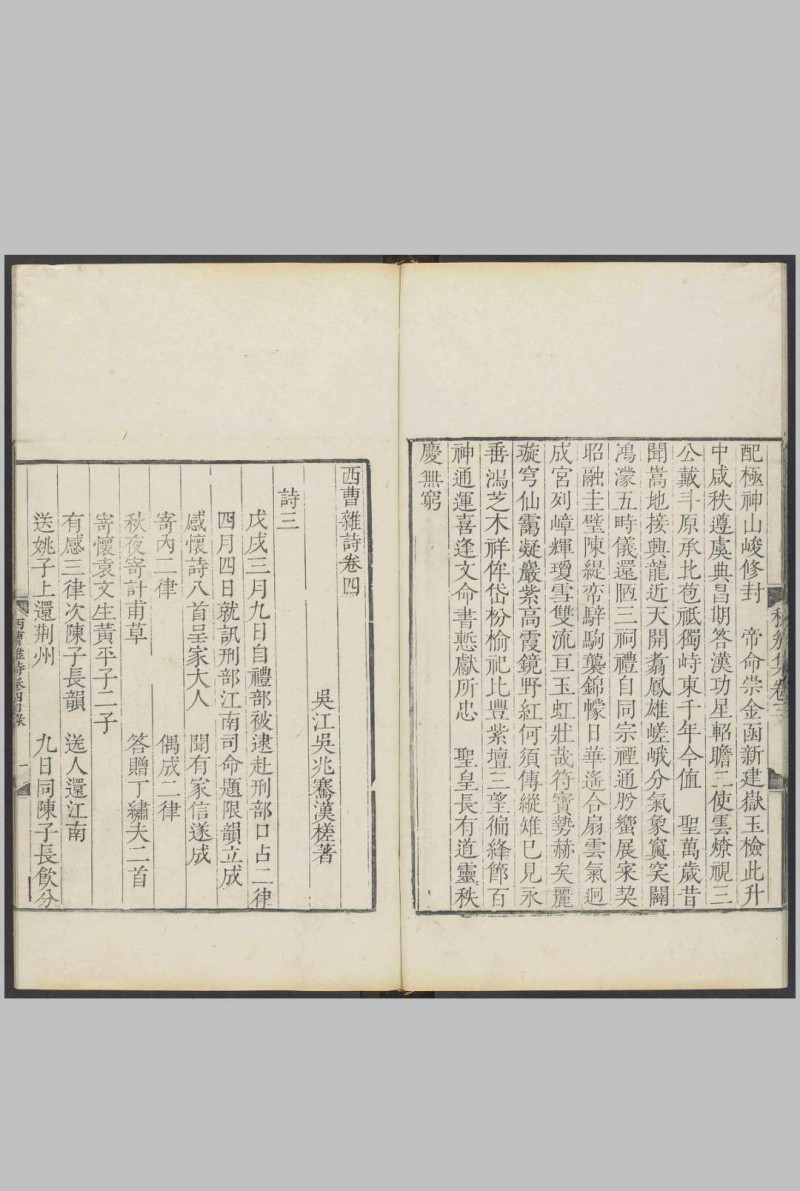 配極神山峻修封　帝命崇金函新建嶽玉檢此升
中咸秩遵虞典昌期答漢功星軺瞻二使雲燎視三
公戴斗原承北苞祇獨峙東千年今値　聖萬歲昔
聞嵩地接興龍近天開翥鳳雄嵯峨分氣象窅窔闢
鴻濛五時儀還陋三祠禮自同宗禋通肸蠁展寀契
昭融圭璧陳緹帟騂駒襲錦幪日華遙合扇雲氣迥
成宮列嶂輝瓊雪雙流亘玉虹壯哉符寶勢赫矣麗
璇穹仙靄凝嚴紫高霞鏡野紅何須傳縱雉巳見永
垂鴻芝木祥侔岱枌榆祀比豐紫壇三望徧絳節百
神通運喜逢文命書慙獻所忠　聖皇長有道靈秩
慶無窮
西曹雜詩卷四
吳江吳兆騫漢槎著
詩三
戊戌三月九日自禮部被逮赴刑部口占二律
四月四日就訊刑部江南司命題限韻立成
感懷詩八首呈家大人　聞有家信遂成
寄內二律　偶成二律
秋夜寄計甫草　答贈丁繡夫二首
寄懷袁文生黃平子二子
有感三律次陳子長韻　送人還江南
送姚子上還荆州　九日同陳子長飲分
西曹雜詩卷四目錄
一